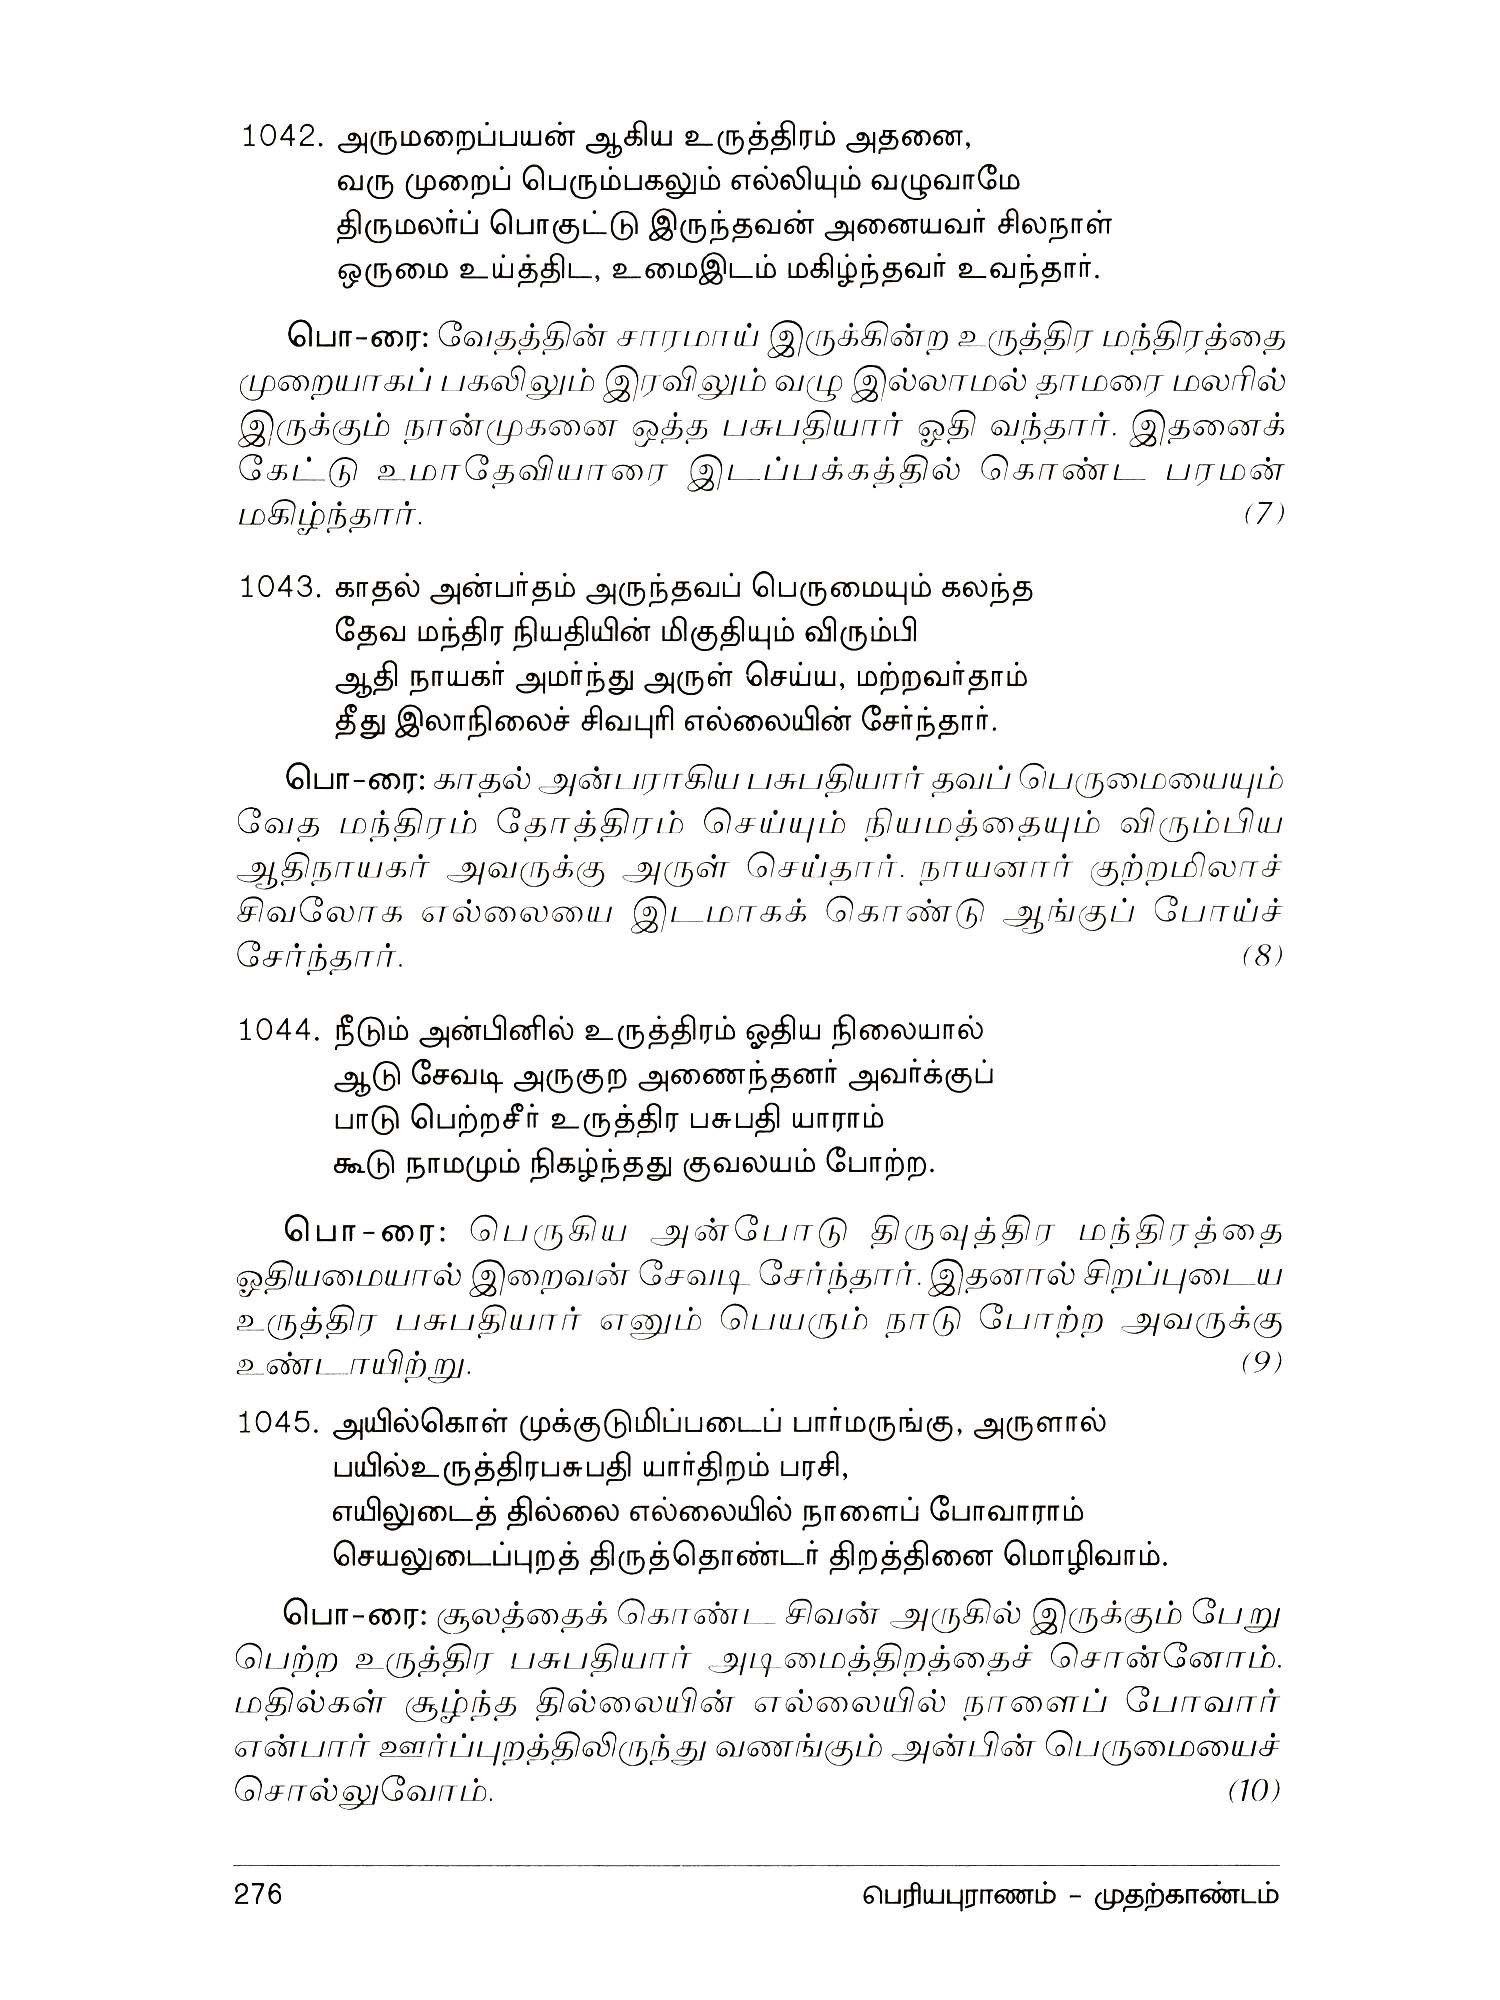 1042. அருமறைப்பயன் ஆகிய உருத்திரம் அதனை,
வரு முறைப் பெரும்பகலும் எல்லியும் வழுவாமே
திருமலர்ப் பொகுட்டு இருந்தவன் அனையவர் சிலநாள்
ஒருமை உய்த்திட, உமைஇடம் மகிழ்ந்தவர் உவந்தார்.
பொ-ரை: வேதத்தின் சாரமாய் இருக்கின்ற உருத்திர மந்திரத்தை
முறையாகப் பகலிலும் இரவிலும் வழு இல்லாமல் தாமரை மலரில்
இருக்கும் நான்முகனை ஒத்த பசுபதியார் ஓதி வந்தார். இதனைக்
கேட்டு உமாதேவியாரை இடப்பக்கத்தில் கொண்ட பரமன்
மகிழ்ந்தார். (7)
1043. காதல் அன்பர்தம் அருந்தவப் பெருமையும் கலந்த
தேவ மந்திர நியதியின் மிகுதியும் விரும்பி
ஆதி நாயகர் அமர்ந்து அருள் செய்ய, மற்றவர்தாம்
தீது இலாநிலைச் சிவபுரி எல்லையின் சேர்ந்தார்.
பொ-ரை: காதல் அன்பராகிய பசுபதியார் தவப் பெருமையையும்
வேத மந்திரம் தோத்திரம் செய்யும் நியமத்தையும் விரும்பிய
ஆதிநாயகர் அவருக்கு அருள் செய்தார். நாயனார் குற்றமிலாச்
சிவலோக எல்லையை இடமாகக் கொண்டு ஆங்குப் போய்ச்
சேர்ந்தார். (8)
1044. நீடும் அன்பினில் உருத்திரம் ஓதிய நிலையால்
ஆடு சேவடி அருகுற அணைந்தனர் அவர்க்குப்
பாடு பெற்றசீர் உருத்திர பசுபதி யாராம்
கூடு நாமமும் நிகழ்ந்தது குவலயம் போற்ற.
பொ-ரை: பெருகிய அன்போடு திருவுத்திர மந்திரத்தை
ஓதியமையால் இறைவன் சேவடி சேர்ந்தார். இதனால் சிறப்புடைய
உருத்திர பசுபதியார் எனும் பெயரும் நாடு போற்ற அவருக்கு
உண்டாயிற்று. (9)
1045. அயில்கொள் முக்குடுமிப்படைப் பார்மருங்கு, அருளால்
பயில்உருத்திரபசுபதி யார்திறம் பரசி,
எயிலுடைத் தில்லை எல்லையில் நாளைப் போவாராம்
செயலுடைப்புறத் திருத்தொண்டர் திறத்தினை மொழிவாம்.
பொ-ரை: சூலத்தைக் கொண்ட சிவன் அருகில் இருக்கும் பேறு
பெற்ற உருத்திர பசுபதியார் அடிமைத்திறத்தைச் சொன்னோம்.
மதில்கள் சூழ்ந்த தில்லையின் எல்லையில் நாளைப் போவார்
என்பார் ஊர்ப்புறத்திலிருந்து வணங்கும் அன்பின் பெருமையைச்
சொல்லுவோம். (10)
276 பெரியபுராணம் - முதற்காண்டம்